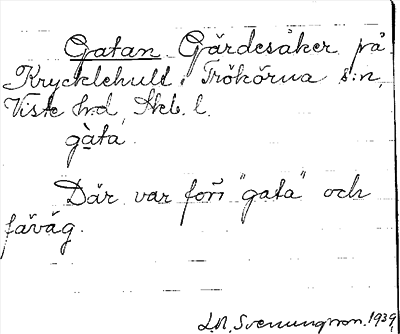 Gatan. Gärdesåker på
Krycklehult i Trökörna s:n,
Viste h:d, Skb. l.
gàta
Där var förr "gata" och
fäväg.
L.N. Svenungsson. 1939